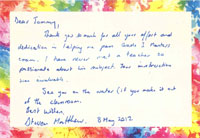 Dear Tammy,
Thank you so much for all your effort and
dedication in helping me pass Grade 2 Mandarin
exam. I have never met a teacher so
passionate about his subject. Your motivation
was invaluable.
See you on the water (if you make it out
of the classroom.
Best wishes,
Steven Matthew. 8 May 2012